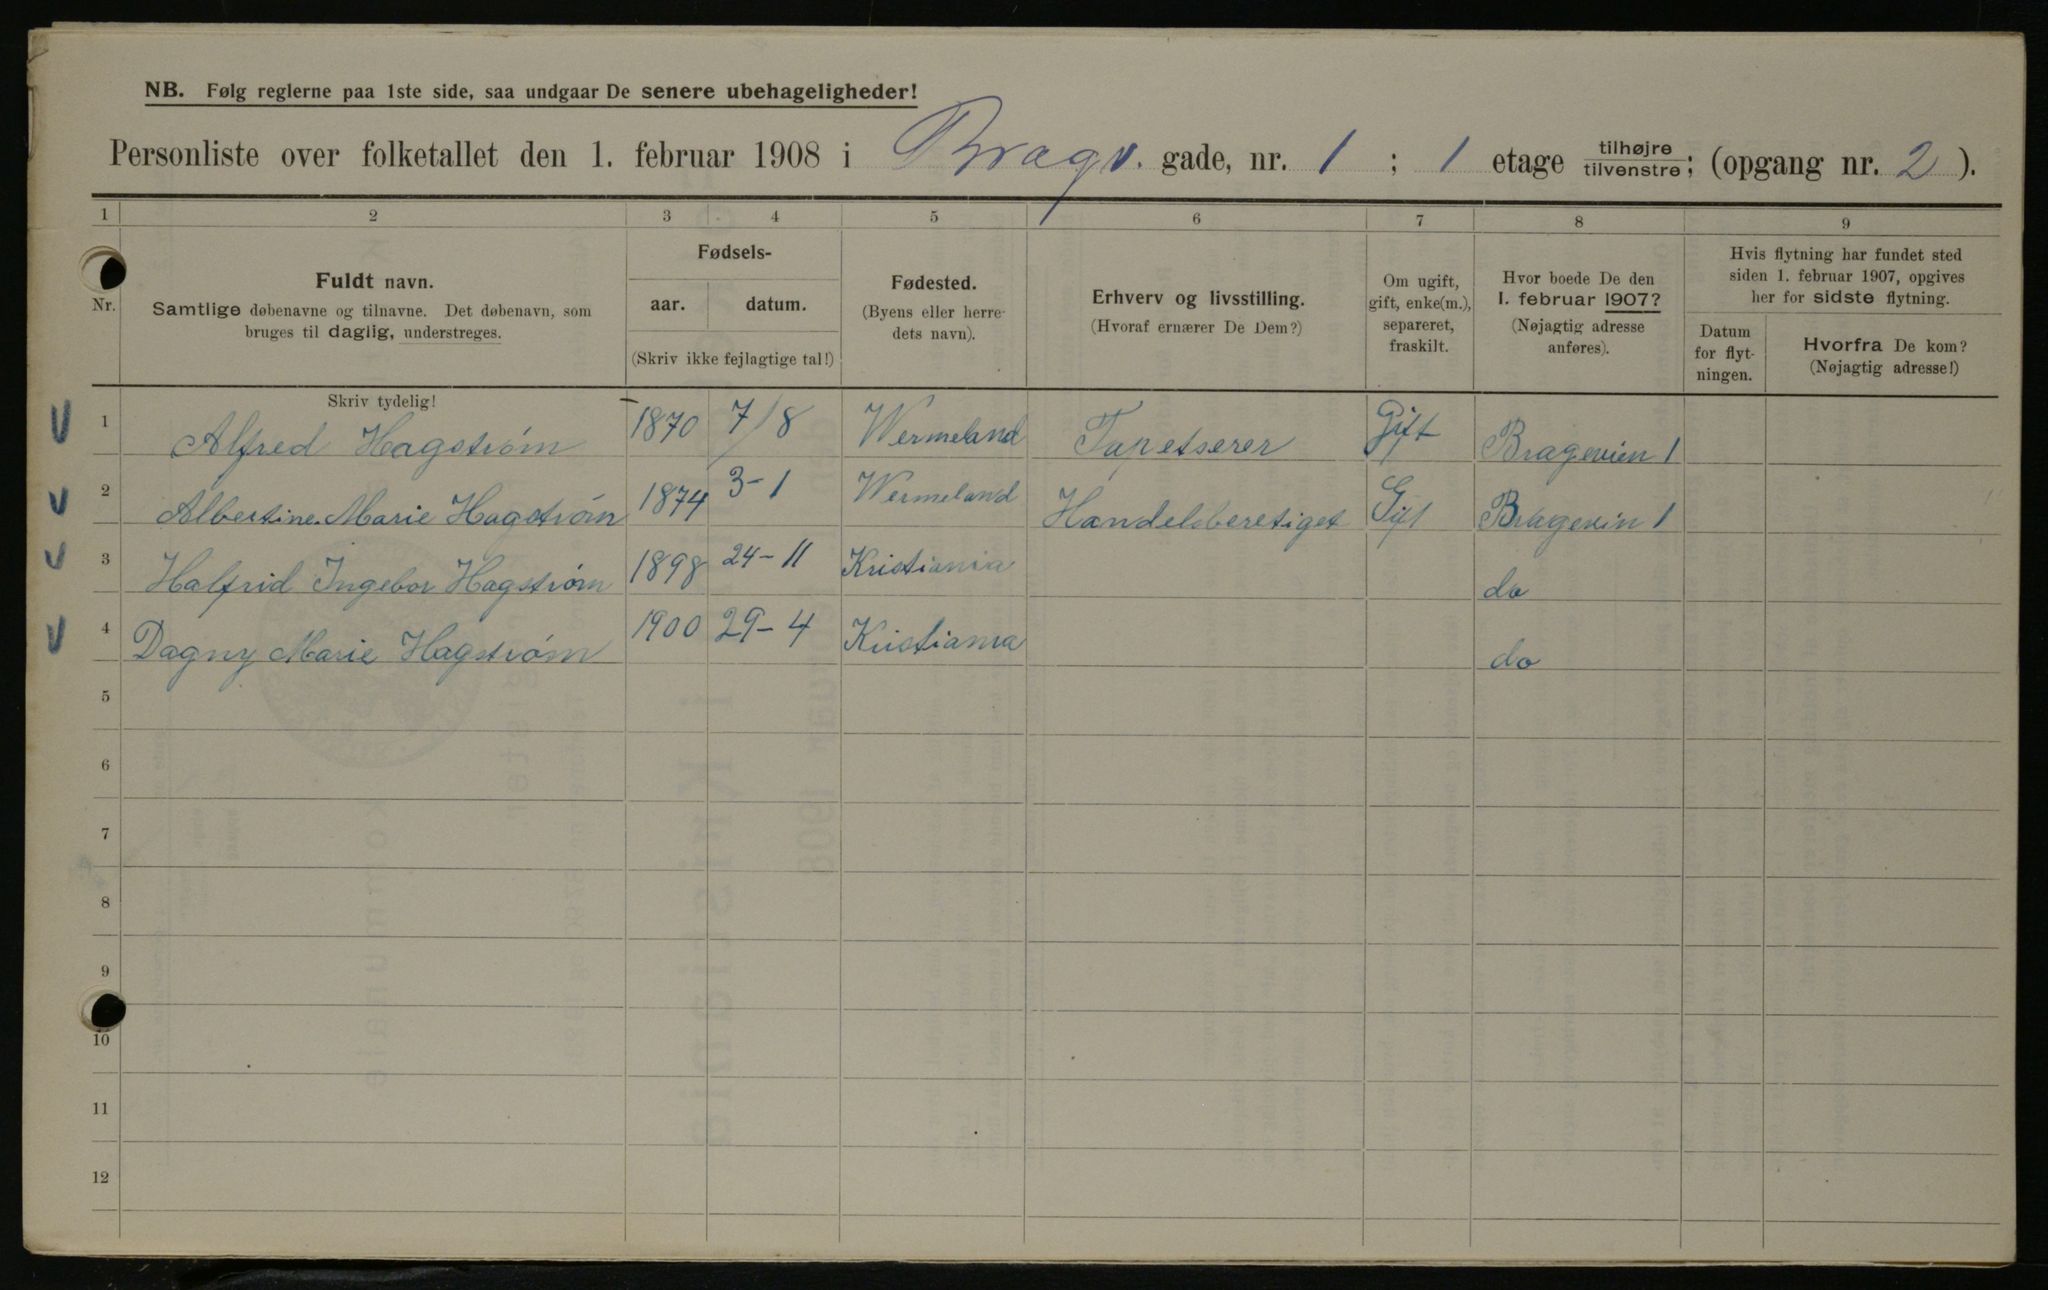 NB. Følg reglerne paa 1ste side, saa undgaar De senere ubehageligheder!
Personliste over folketallet den 1. februar 1908 i Bragv. gade, nr. 1 ; 1 etage tilhøjre/tilvenstre; (opgang nr. 2 ).
1 2 3 4 5 6 7 8 9
Nr.
Fuldt navn.
Samtlige døbenavne og tilnavne. Det døbenavn, som
bruges til daglig, understreges.
Skriv tydelig!
Fødsels-
aar. datum.
(Skriv ikke fejlagtige tal!)
Fødested.
(Byens eller herre-
dets navn).
Erhverv og livsstilling.
(Hvoraf ernærer De Dem?)
Om ugift,
gift, enke(m.),
separeret,
fraskilt.
Hvor boede De den
1. februar 1907?
(Nøjagtig adresse
anføres).
Hvis flytning har fundet sted
siden 1. februar 1907, opgives
her for sidste flytning.
Datum
for flyt-
ningen.
Hvorfra De kom?
(Nøjagtig adresse!)
1 Alfred Hagstrøm 1870 7/8 Wermeland Tapetserer Gift Bragevien 1
2 Albertine Marie Hagstrøm 1874 3-1 Wermeland Handelsberetiget Gift Bragevin 1
3 Halfrid Ingebor Hagstrøm 1898 24-11 Kristiania do
4 Dagny Marie Hagstrøm 1900 29-4 Kristiania do
5
6
7
8
9
10
11
12